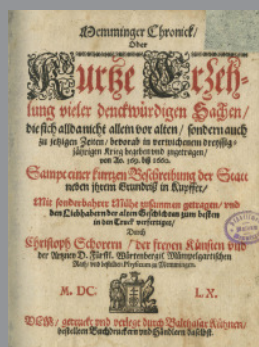 Memminger Chronick/
Oder
Kurtze Erzeh-
lung vieler denckwürdigen Sachen/
die sich allda nicht allein vor alten/ sondern auch
zu jetzigen Zeiten/ bevorab in verwichenem dreyssig-
jährigen Krieg begeben und zugetragen/
von Ao. 369. biß 1660.
Sampt einer kurtzen Beschreibung der Statt
neben jhrem Grundriß in Kupffer/
Mit sonderbahrer Mühe zusammen getragen/ und
den Liebhabern der alten Geschichten zum besten
in den Truck verfertiget/
Durch
Christoph Schorern/ der freyen Künsten und
der Artzney D. Fürstl. Würtenbergis. Mümpelgartischen
Raht/ und bestelten Physicum zu Memmingen.
M. DC. L X.
ULM/ getruckt und verlegt durch Balthasar Kühnen/
bestellten Buchdruckern und Händlern daselbst.